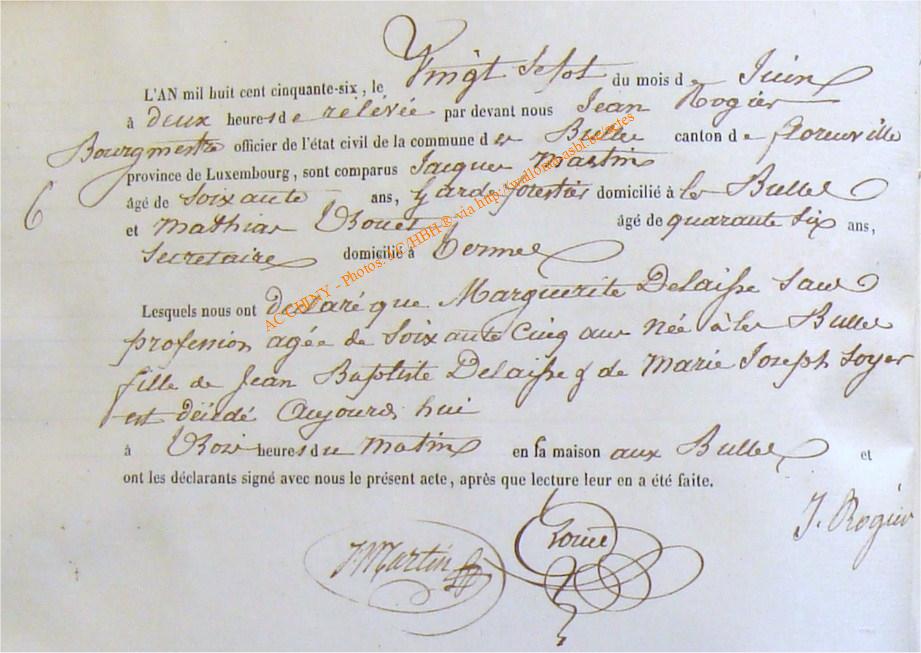 L'AN mil huit cent cinquante-six, le Vingt Sept du mois de Juin
à deux heures de relévée par devant nous Jean Rogier
Bourgmestre officier de l'état civil de la commune des Bulles canton de florenville
province de Luxembourg, sont comparus Jacques Martin
6
âgé de Soixante ans, Garde forestier domicilié à les Bulles
et Mathias âgé de quarante Six ans,
Secretaire domicilié à Termes
Lesquels nous ont declaré que Marguerite Delaisse Sans
profession agée de Soixante Cinq ans Née à les Bulles
fille de Jean Baptiste Delaisse & de Marie Joseph Soyer
est décédé Aujourd hui
à trois heures du matin en sa maison aux Bulles et
ont les déclarants signé avec nous le présent acte, après que lecture leur en a été faite.
J. Rogier
J Martin
AC CHINY - Photos: LC/HBH © via http://wallonia.asbl.be/actes